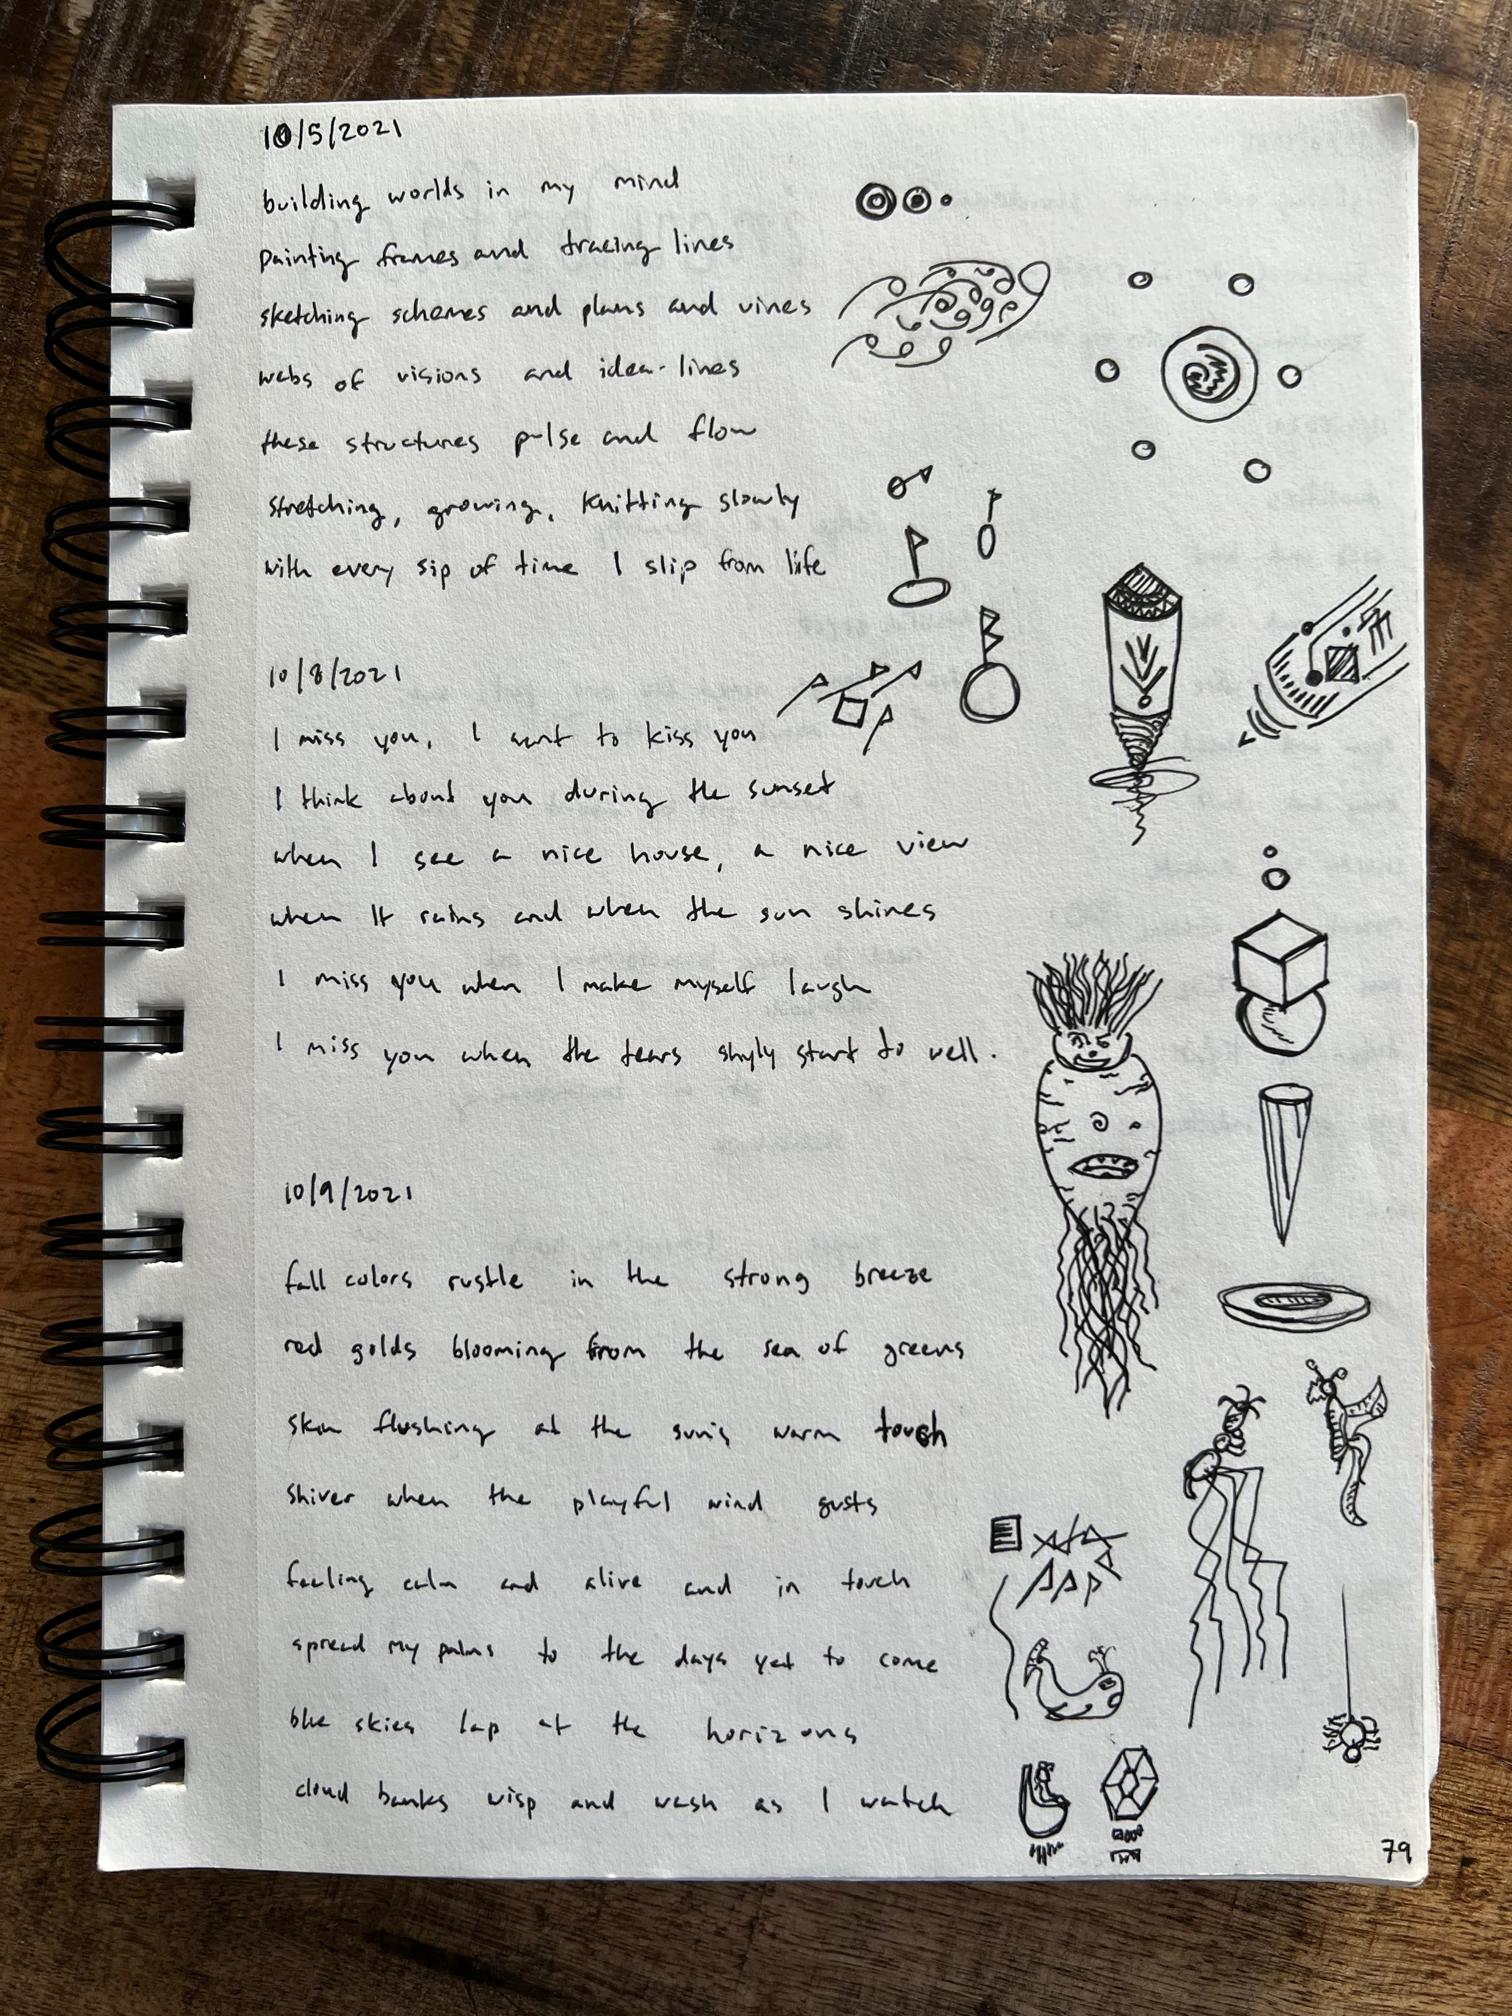 10/5/2021
building worlds in my mind
painting frames and tracing lines
sketching schemes and plans and vines
webs of visions and idea-lines
these structures pulse and flow
stretching, growing, knitting slowly
with every sip of time I slip from life
10/8/2021
I miss you, I want to kiss you
I think about you during the sunset
when I see a nice house, a nice view
when It rains and when the sun shines
I miss you when I make myself laugh
I miss you when the tears shyly start to well.
10/9/2021
fall colors rustle in the strong breeze
red golds blooming from the sea of greens
skin flushing at the sun's warm touch
shiver when the playful wind gusts
feeling calm and alive and in touch
spread my palms to the days yet to come
blue skies lap at the horizons
cloud banks wisp and wash as I watch
79